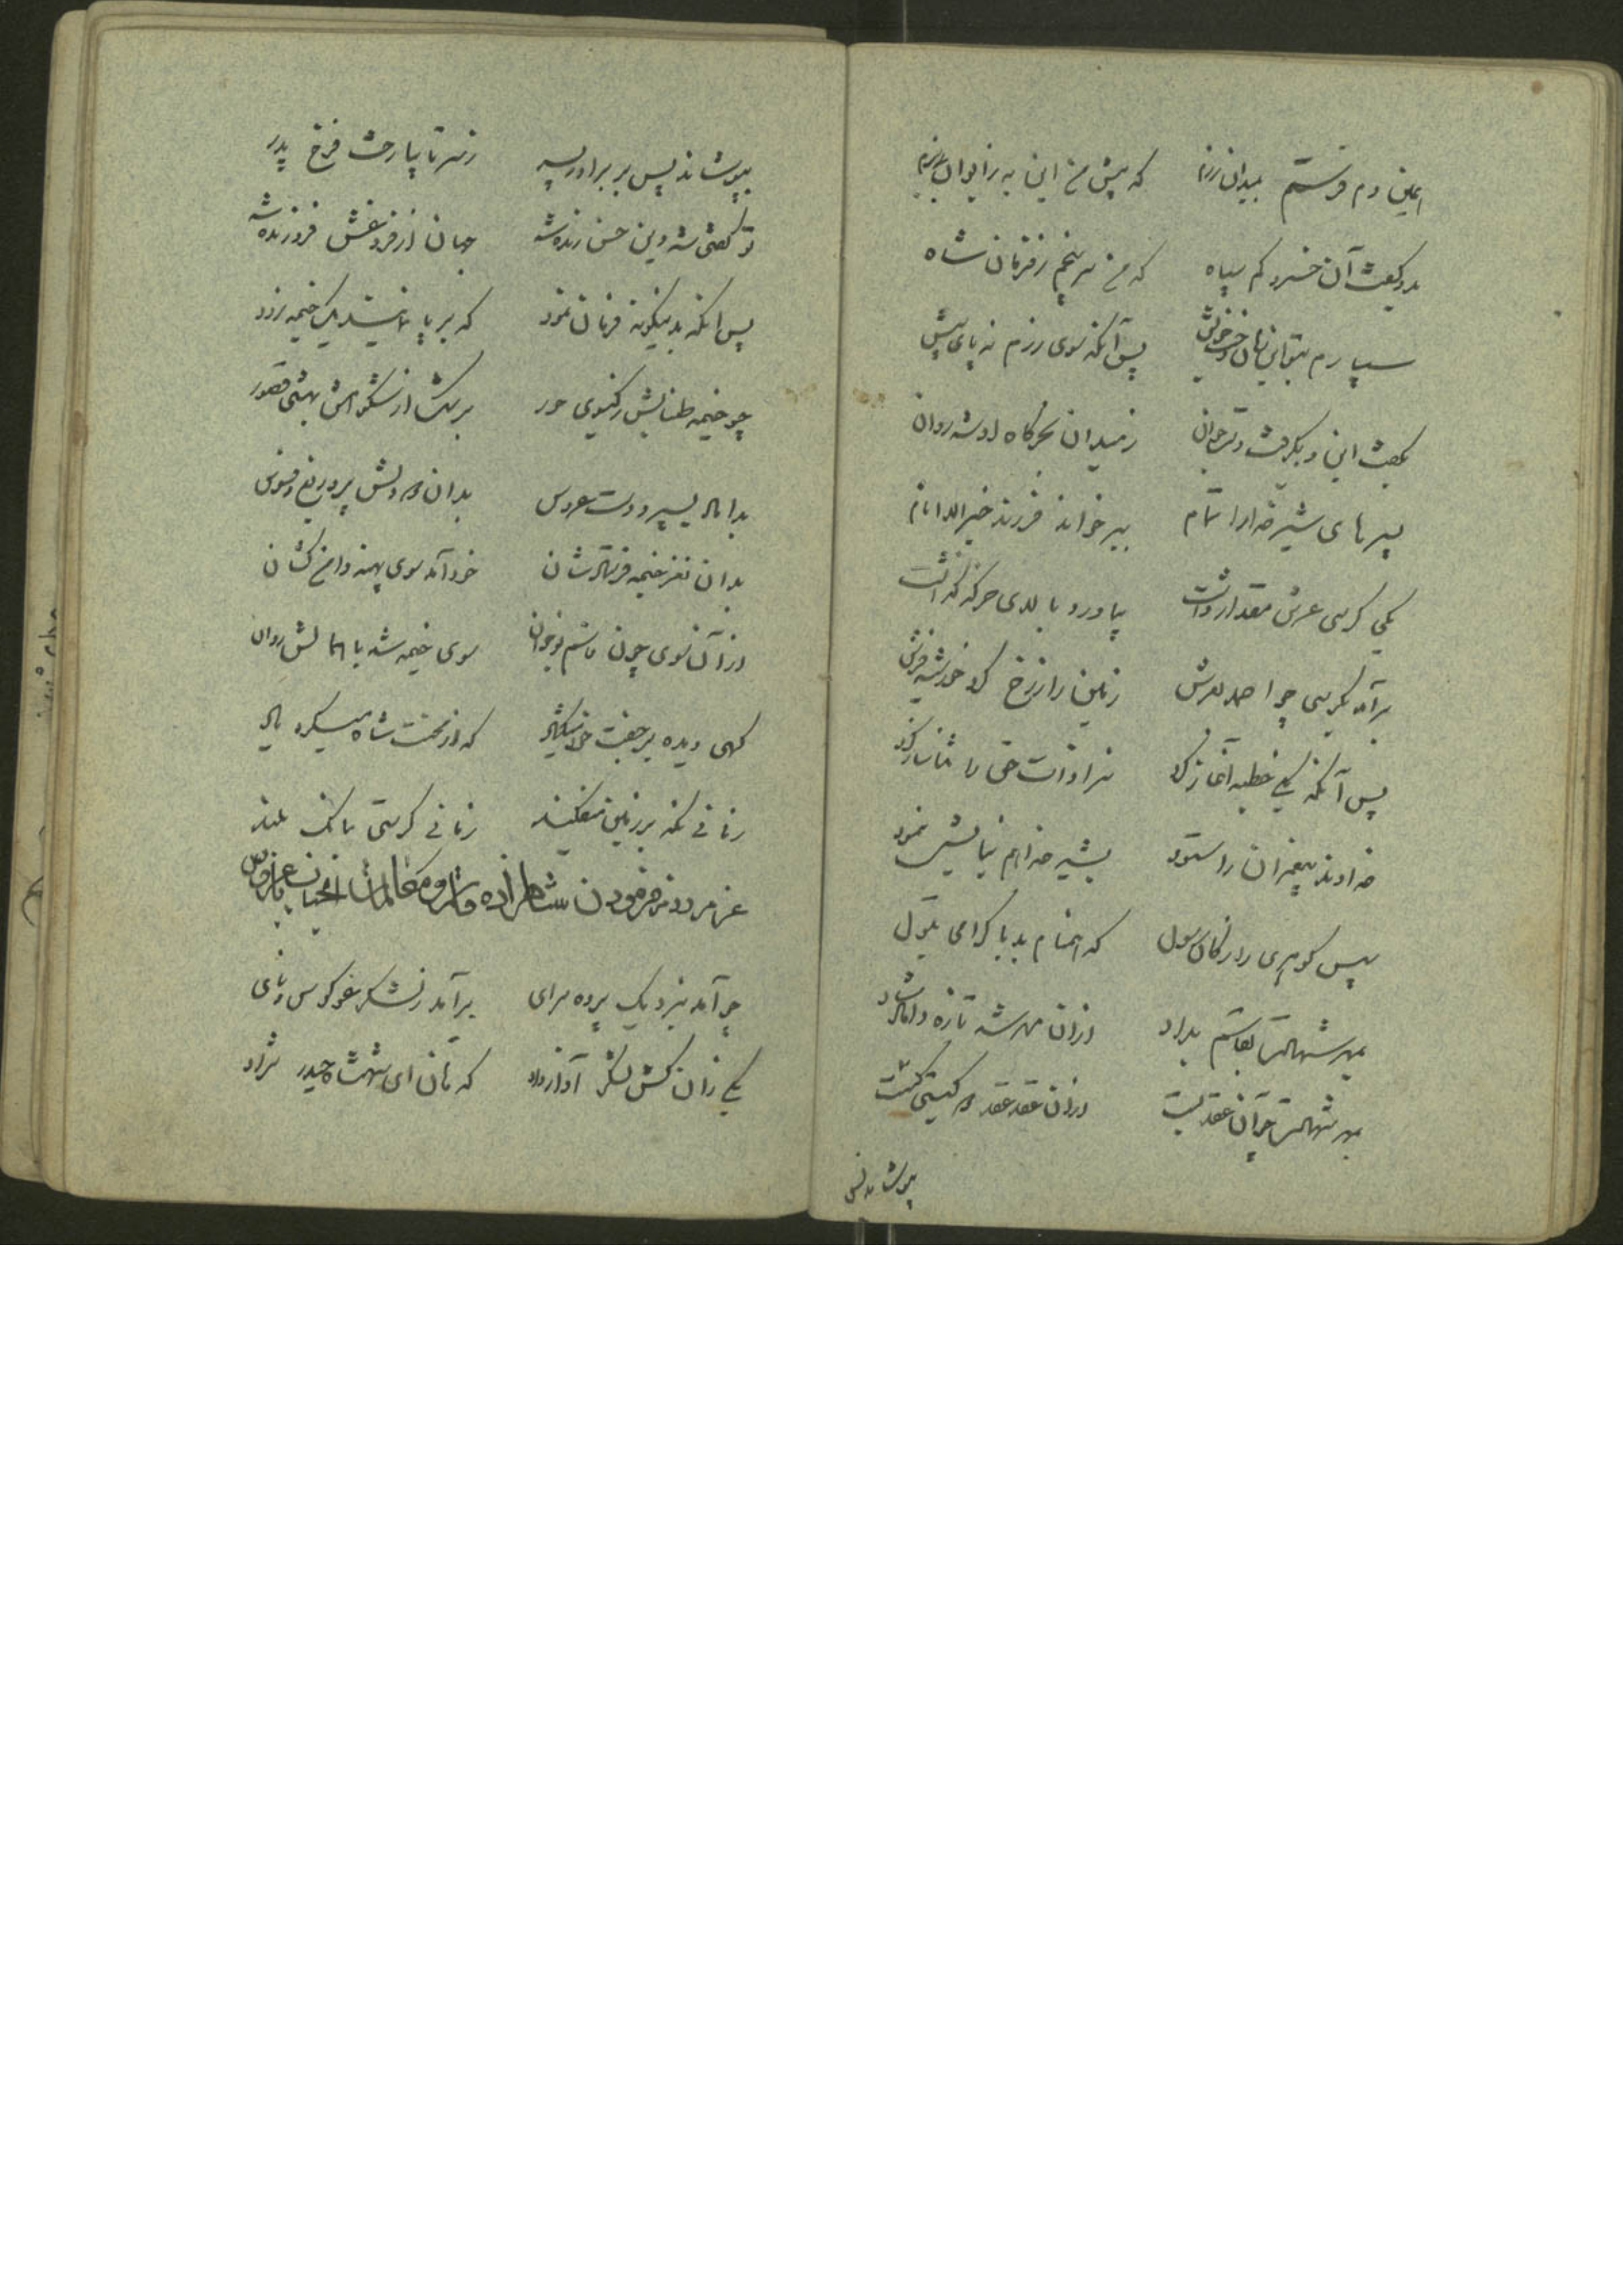 همین دم فرستم بمیدان رزم که پیش من این به ز ایوان بزم
بدو گفت آن خسرو کم سپاه که من سر نپیچم ز فرمان شاه
سپارم پس آنگه سوی رزم نه پای پیش
بگفت این و بگرفت دست جوان ز میدان بخرگاه او شد روان
پسرهای شیر خدا را تمام ببر خواند فرزند خیر الانام
یکی کرسی عرش مقدار داشت بیاورد بالای خرگه گذاشت
برآمد بکرسی چو احمد بعرش زمین را ز رخ کرد خورشید فرش
پس آنگه یکی خطبه آغاز کرد سزا ذات حق را ثنا ساز کرد
خداوند پیغمبران را ستود بشیر خدا هم نیایش نمود
سپس گوهری راز کان رسول که همنام بد با گرامی بتول
بمهر شهادت بقاسم بداد وزان مهر شد تازه داماد شاد
بمهر شهادت چو آن عقد بست وزان عقد عقد گیتی گسست
پوشاندش
بپوشاند پس بر برادر پسر ز سر تا بپا رخت فرخ پدر
تو گفتی شه دین حسن زنده شد جهان از فروغش فروزنده شد
پس آنگه بدینگونه فرمان نمود که بر پا نمایند یک خیمه زود
چو خیمه طنابش ز گیسوی حور بر رشک از شکوهش بهشتی قصور
بداماد بسپرد دست عروس بدان هر دلش پر دریغ و فسوس
بدان نغز خیمه فرستادشان خود آمد سوی پهنه دامن کشان
وز آن سوی چون قاسم نوجوان سوی خیمه شد با همالش روان
گهی دیده بر جفت که از محنت شاه میکرد یاد
زمانی نگه بر زمین میفکند زمانی گرستی ببانگ بلند
عزم رزم فرمودن شاهزاده قاسم و مکالمات آنجناب با عروس
چو آمد بنزدیک پرده سرای برآمد ز لشکر غو کوس و نای
یکی زان کشن لشکر آواز داد که هان ای شهنشاه حیدر نژاد